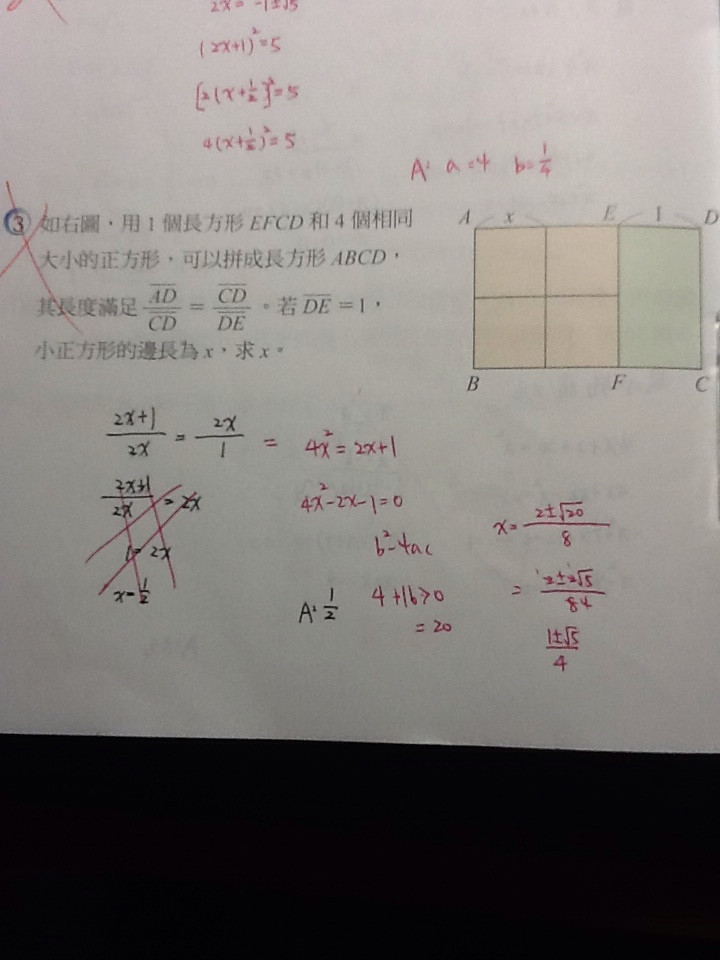 2x = -1±√5
(2x+1)²=5
[2(x+1/2)]²=5
4(x+1/2)²=5
A: a=4 b=1/4
③ 如右圖，用 1 個長方形 EFCD 和 4 個相同
大小的正方形，可以拼成長方形 ABCD，
其長度滿足 AD/CD = CD/DE 。若 DE =1，
小正方形的邊長為 x，求 x。
A x E 1 D
B F C
(2x+1)/2x = 2x/1 = 4x²=2x+1
(2x+1)/2x = 2x
4x²-2x-1=0
1=2x
b²-4ac
x=1/2
A: 1/2
4+16>0
=20
x= (2±√20)/8
= (2±2√5)/84
(1±√5)/4